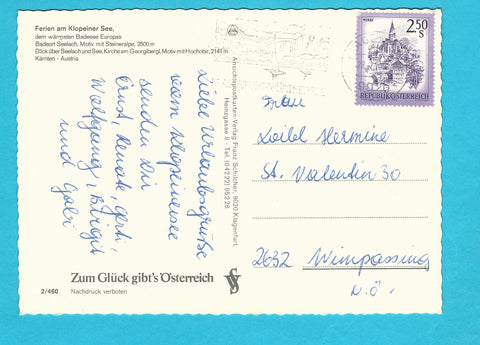 Ferien am Klopeiner See,
dem wärmsten Badesee Europas
Badeort Seelach, Motiv mit Steineralpe, 2500m
Blick über Seelach und See, Kirche am Georgibergl, Motiv mit Hochobir, 2141m
Kärnten - Austria
Liebe Urlaubsgrüße
vom Klopeinersee
senden Dir
Ernst, Renate, Gerti,
Wolfgang, Birgit
und Gabi
Zum Glück gibt's Österreich
2/460
Nachdruck verboten
Ansichtspostkarten-Verlag Franz Schilcher, 9020 Klagenfurt,
SV
MURAU
2.50
S
REPUBLIK ÖSTERREICH
Frau
Hermine
St. Valentin 30
2632 Wimpassing
N.Ö.